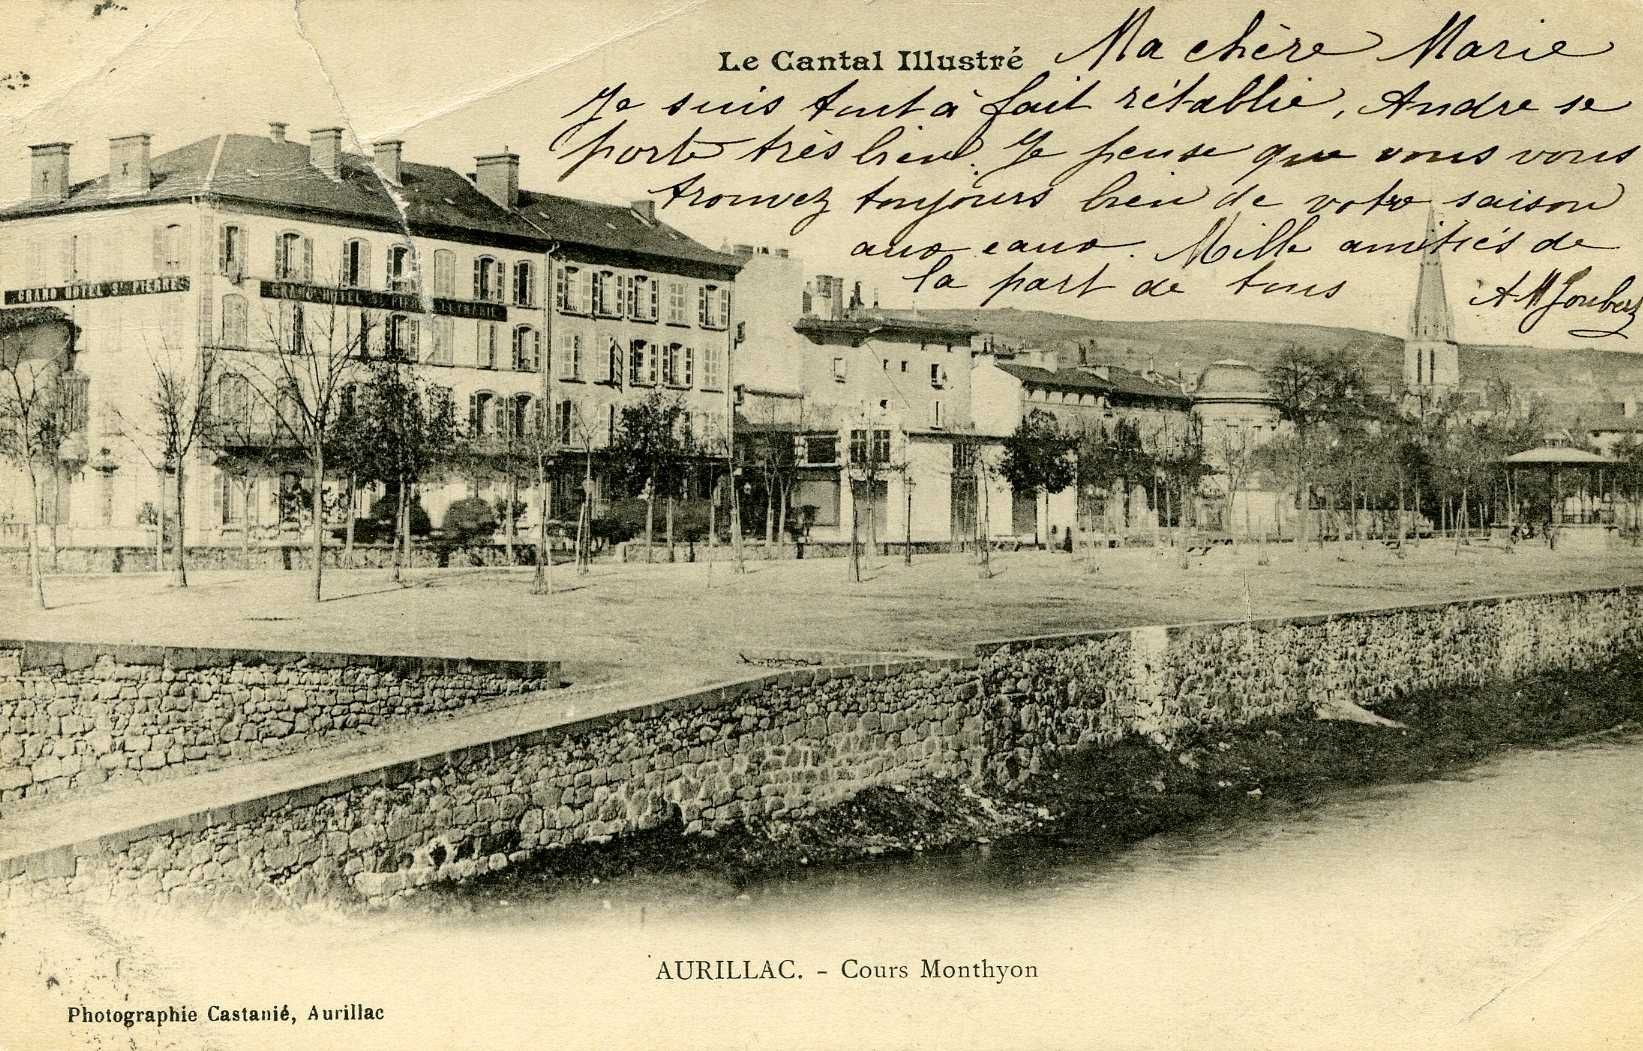 Le Cantal Illustré
Ma chère Marie
Je suis tout à fait rétablie, Andre se
porte très bien. Je pense que vous vous
trouvez toujours bien de votre saison
aux eaux. Mille amitiés de
la part de tous
AM Joubert
GRAND HOTEL ST PIERRE
GRAND HOTEL ST PIERRE
AURILLAC. - Cours Monthyon
Photographie Castanié, Aurillac